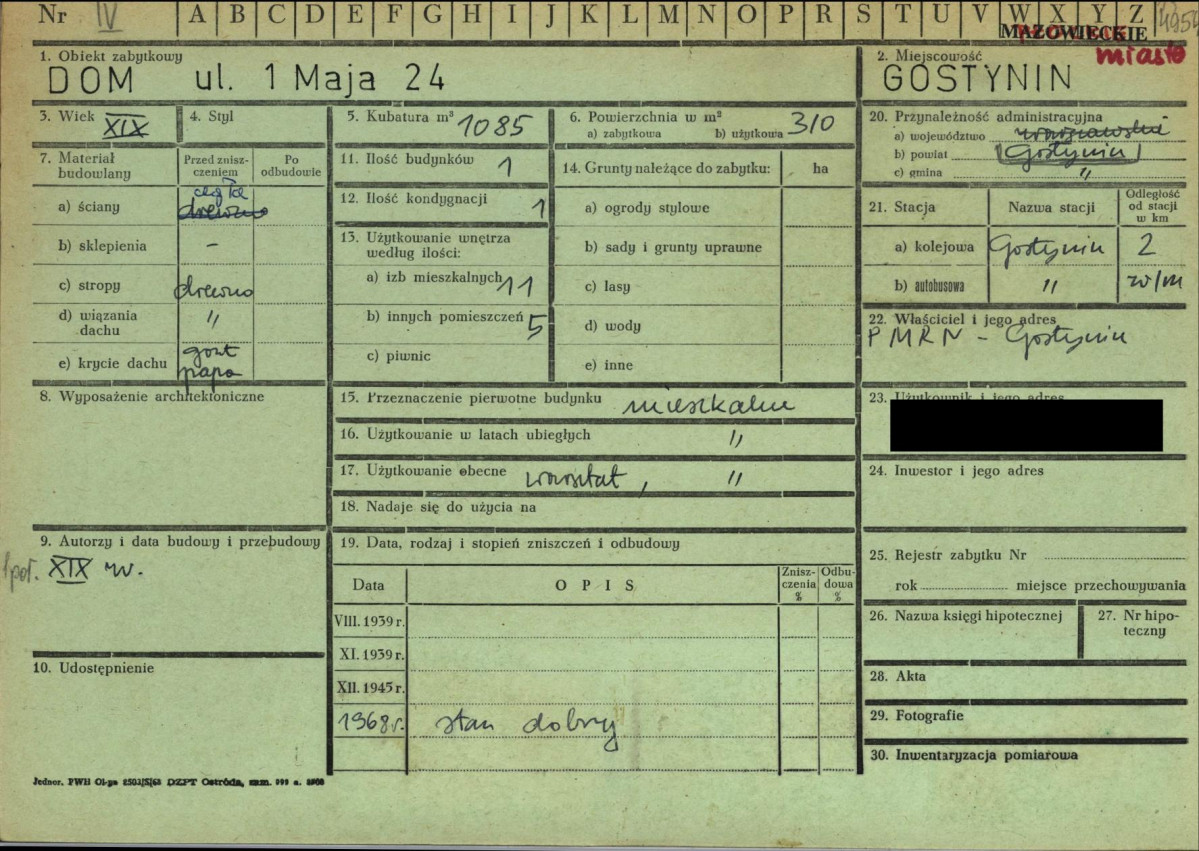 Nr IV A B C D E F G H I J K L M N O P R S T U V W X Y Z 4954
MAZOWIECKIE
miasto
1. Obiekt zabytkowy
DOM ul. 1 Maja 24
2. Miejscowość
GOSTYNIN
3. Wiek XIX
4. Styl
5. Kubatura m³ 1085
6. Powierzchnia w m²
a) zabytkowa b) użytkowa 310
7. Materiał budowlany
Przed zniszczeniem
Po odbudowie
a) ściany cegła drewno
b) sklepienia –
c) stropy drewno
d) wiązania dachu "
e) krycie dachu gont papa
8. Wyposażenie architektoniczne
9. Autorzy i data budowy i przebudowy
1 poł. XIX w.
10. Udostępnienie
11. Ilość budynków 1
12. Ilość kondygnacji 1
13. Użytkowanie wnętrza według ilości:
a) izb mieszkalnych 11
b) innych pomieszczeń 5
c) piwnic
14. Grunty należące do zabytku: ha
a) ogrody stylowe
b) sady i grunty uprawne
c) lasy
d) wody
e) inne
15. Przeznaczenie pierwotne budynku mieszkalne
16. Użytkowanie w latach ubiegłych "
17. Użytkowanie obecne warsztat, "
18. Nadaje się do użycia na
19. Data, rodzaj i stopień zniszczeń i odbudowy
Data OPIS Zniszczenia % Odbudowa %
VIII. 1939 r.
XI. 1939 r.
XII. 1945 r.
1968 r. stan dobry
20. Przynależność administracyjna
a) województwo warszawskie
b) powiat Gostynin
c) gmina "
21. Stacja Nazwa stacji Odległość od stacji w km
a) kolejowa Gostynin 2
b) autobusowa " w/m
22. Właściciel i jego adres
PMRN – Gostynin
23. Użytkownik i jego adres
24. Inwestor i jego adres
25. Rejestr zabytku Nr
rok miejsce przechowywania
26. Nazwa księgi hipotecznej
27. Nr hipoteczny
28. Akta
29. Fotografie
30. Inwentaryzacja pomiarowa
Jednor. PWH Ol-ga 2503/S/68 DZPT Ostróda, zam. 999 a.